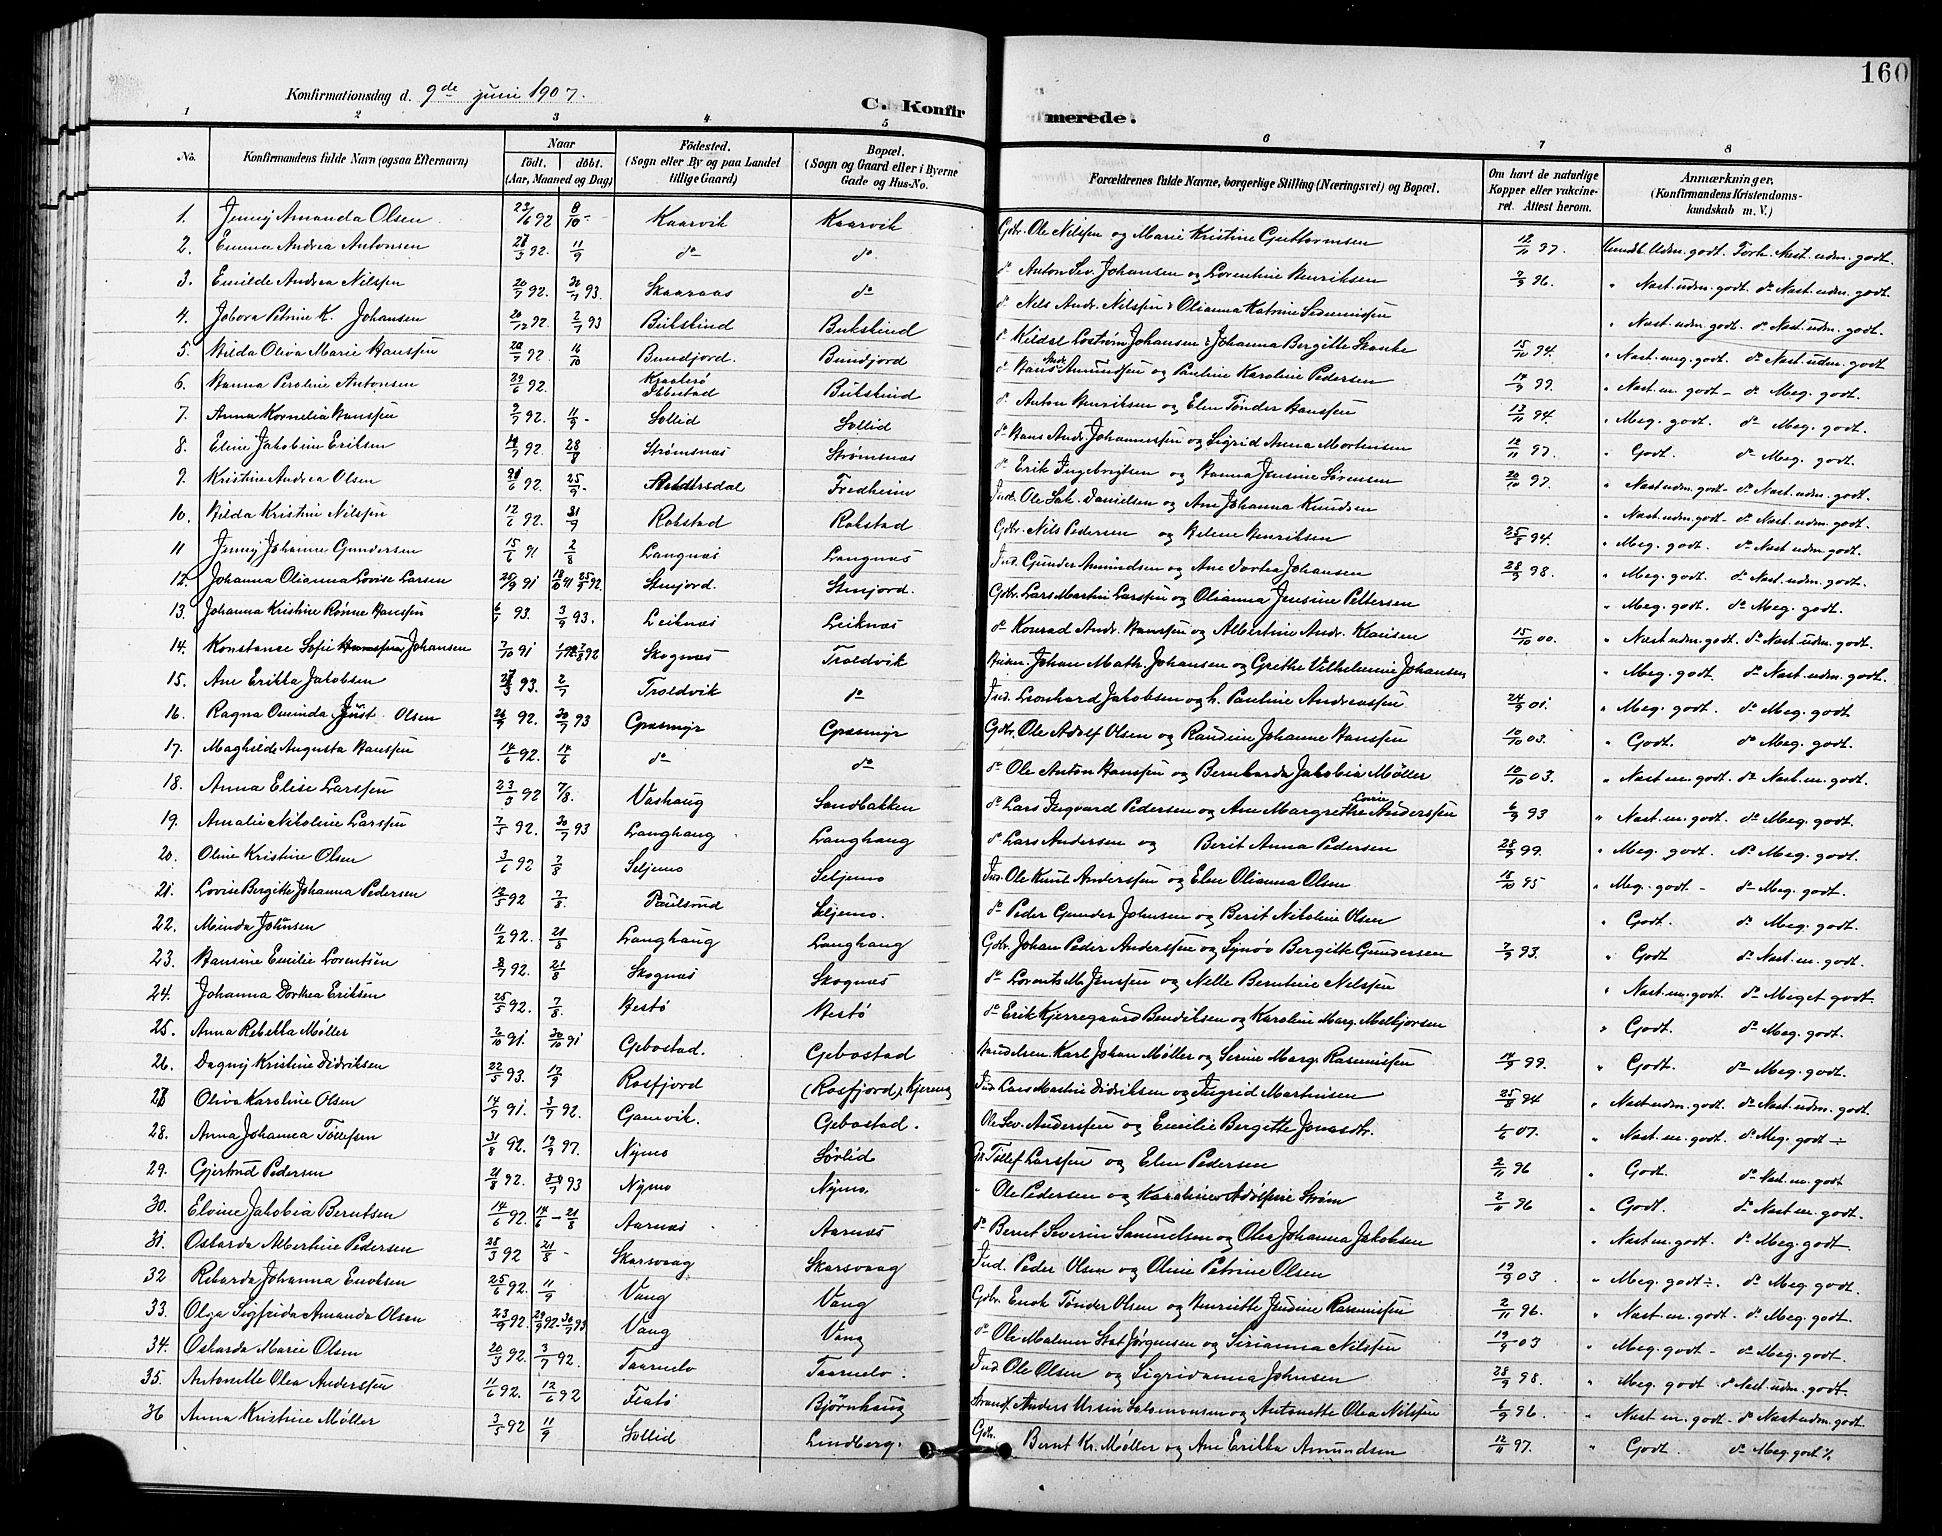 160
Konfirmationsdag d. 9de juni 1907.
C. Konfirmerede.
1 2 3 4 5 6 7 8
No. Konfirmandens fulde Navn (ogsaa Efternavn) Naar födt. döbt. (Aar, Maaned og Dag) Födested. (Sogn eller By og paa Landet tillige Gaard) Bopæl. (Sogn og Gaard eller i Byerne Gade og Hus-No. Forældrenes fulde Navne, borgerlige Stilling (Næringsvei) og Bopæl. Om havt de naturlige Kopper eller vakcineret. Attest herom. Anmærkninger, (Konfirmandens Kristendomskundskab m. V.)
1. Jenny Amanda Olsen 23/6 92 8/10 - Kaarvik Kaarvik Gdbr. Ole Nilsen og Marie Kristine Guttormsen 12/11 97. Kundt. Udm. godt. Forh. Nast. udm. godt.
2. Emma Andrea Antonsen 92. 11/9 do do do Anton Sev. Johansen og Lorentine Henriksen 7/9 96. " Nast. udm. godt do Nast. udm. godt.
3. Emilde Andrea Nilsen 20/7 92. 30/7 93 Skaaraas do do Nils Andr. Nilsen & Olianna Katrine " Nast. udm. godt. do Nast. udm. godt.
4. Jobova Petrine K. Johansen 20/12 92. 2/7 93 Bukskind Bukskind do Kildal Johansen & Johanna Bergitte Skanke 15/10 94. " Nast. meg. godt. do Nast. udm. godt
5. Hilda Oliva Marie Hansen 92. 16/10 Bundjord. Bundjord do Hans Andr. Amundsen og Pauline Karoline Pedersen 99. " Nast. m. godt - do Meg. godt.
6. Hanna Peroline Antonsen 29/6 92. Ibbestad Bukskind do Anton Henriksen og Elen Tønder Hansen 13/11 94. " Meg. godt. do Meg. godt.
7. Anna Kornelia Hansen 2/7 92. 11/9 - Sollid Sollid do Hans Andr. Johannesen og Sigrid Anna Mortensen 12/11 97. " Godt. do Meg. godt.
8. Eline Jakobine Eriksen 92. 28/8 Strømsnæs Strømsnæs do Erik Ingebrigtsen og Hanna Jensine Sørensen 20/10 97. " Nast udm. godt - do Nast. udm. godt.
9. Kristine Andrea Olsen 92. 25/9 - Fredheim Ind. Ole Sak. Danielsen og Ane Johanna Knudsen " Nast udm. godt - do Nast. udm. godt.
10. Hilda Kristine Nilsen 12/6 92. 31/7 Robstad Robstad Gdbr. Nils Pedersen og Helene Henriksen 25/8 94. " Meg. godt. do Nast udm. godt.
11 Jenny Johanne Gundersen 15/6 91 2/8 Langnæs Langnæs Ind. Gunder Amundsen og Ane Dorthea Johansen 28/9 98. " Meg. godt. do Nast. udm. godt.
12. Johanna Olianna Lovise Larsen 20/9 91 18/10 91 25/9 92 Stenjord. Stenjord. Gdbr. Lars Martin Larsen og Olianna Jensine Pettersen " Meg. godt. do Meg. godt.
13. Johanna Kristine Rønne Hansen 93. 3/9 93. Leiknæs Leiknæs do Konrad Andr. Hansen og Albertine Andr. Klausen 15/10 00. " Nast udm. godt. do Nast udm. godt.
14. Konstanse Sofie Johansen 7/10 91 7/8 92 Skognæs Troldvik Johan Math. Johansen og Grethe Vilhelmine Johansen " Meg. godt. do Nast udm. godt.
15. Ane Erikka Jakobsen 93. 2/7 Troldvik do Ind. Leonhard Jakobsen og h. Pauline Andreassen 24/9 01. " Meg. godt. do Meg. godt
16. Ragna Ominda Just. Olsen 26/9 92. 30/7 93 Græsmyr Græsmyr Gdbr. Ole Adolf Olsen og Randine Johanne Hansen 10/10 03. " Godt. do Meg. godt.
17. Maghilde Augusta Hansen 14/6 92. 14/6 do do do Ole Anton Hansen og Bernharda Jakobia Møller 10/10 03. " Nast m. godt. do Nast. m. godt.
18. Anna Elise Larssen 23/3 92 7/8. Vashaug Sandbakken do Lars Ingvard Pedersen og Ane Margrethe Lovise Andersen 6/9 93 " Nast. m. godt. do Meg. godt.
19. Amalie Nikoline Larsen 7/5 92. 30/7 93 Langhaug Langhaug do Lars Andersen og Berit Anna Pedersen 28/9 99. " Meg. godt. do Meg. godt.
20. Oline Kristine Olsen 3/6 92 7/8 Seljemo Seljemo Ind. Ole Knut Andersen og Elen Olianna Olsen 18/10 95 " Meg. godt - do Meg. godt.
21. Lovise Bergitte Johanna Pedersen 12/5 92 7/8. Paulsrud Seljemo. do Peder Gunder Johnsen og Berit Nikoline Olsen " Godt. do Meg. godt.
22. Minda Johnsen 11/2 92. 21/8 Langhaug Langhaug Gdbr. Johan Peder Andersen og Synøv Bergitte Gundersen 7/9 93. " Godt do Nast. m. godt.
23. Hansine Emilie Lorentsen 8/7 92. 21/8 Skognæs Skognæs do Lorents M. Jenssen og Nelle Berntine Nilsen " Nast. m. godt. do Meget godt.
24. Johanna Dorthea Eriksen 25/5 92. 7/8. Hestø Hestø do Erik Kjerregaard Bendiksen og Karoline Marg. Melkjorsen " Godt. do Meg. godt.
25. Anna Rebekka Møller 2/10 91. 30/10 91 Gebostad. Gebostad Handelsm. Karl Johan Møller og Serine Marg. Rasmussen 14/9 99. " Godt. do Meg. godt.
26. Dagny Kristine Didriksen 22/5 93. 17/9 Rosfjord (Rosfjord), Ind. Lars Martin Didriksen og Ingrid Martinsen 25/8 94 " Nast udm. godt. do Nast. udm. godt.
27 Oliva Karoline Olsen 14/7 91. 3/7 92. Gamvik. Gebostad. Ole Sev. Andersen og Emilie Bergitte Jonasdtr. 1/6 07. " Nast. m. godt. do Meg. godt ÷
28. Anna Johanna Tollefsen 31/8 92. 19/9 97. Nymo Sørlid Gbr. Tollef Larssen og Elen Pedersen 2/11 96 " Godt. do Nast. m. godt
29. Gjertrud Pedersen 21/8 92. 93 Nymo Nymo. " Ole Pedersen og Karoline Adolfine Strøm 2/11 96 " Godt. do Nast m. godt.
30. Elvine Jakobia Berntsen 14/6 92. 14/6 - 21/8 Aarnæs Aarnæs do Bernt Severin Samuelsen og Olea Johanna Jakobsen " Nast m. godt. do Meg. godt.
31. Oskarda Albertine Pedersen 28/3 92 21/8 - Skarsvaag Skarsvaag Ind. Peder Olsen og Oline Petrine Olsen 19/9 03. " Meg. godt ÷. do Meg. godt.
32 Rikarda Johanna Enoksen 25/6 92. 11/9 Vang Vang Gdbr. Enok Tønder Olsen og Henriette Jensine Rasmussen 2/11 96. " Nast. m. godt. do Meg. godt.
33. Olga Sigfrida Amanda Olsen 23/9 92. 29/9 92. - 30/7 93 Vang Vang do Ole Malmer Stat Jørgensen og Sirianna Nilsen 19/9 03 " Meg. godt - do Meg. godt.
34. Oskarda Marie Olsen 20/3 92. 3/7 92. Taarnelv Taarnelv. Ind. Ole Olsen og Sigridanna Johnsen 28/9 98. " Meg. godt do Nast. udm. godt.
35. Antonette Olea Andersen 11/6 92. 12/6 92 Flatø Bjørnhaug Strands. Anders Ursin Salamonsen og Antonette Olea Nilsen 6/9 96. " Nast m. godt - do Nast udm. godt
36 Anna Kristine Møller 3/5 92 11/9 Sollid Lindberg. Gdbr. Bernt Kr. Møller og Ane Erikka Amundsen 12/11 97. " Godt. do Meg. godt %